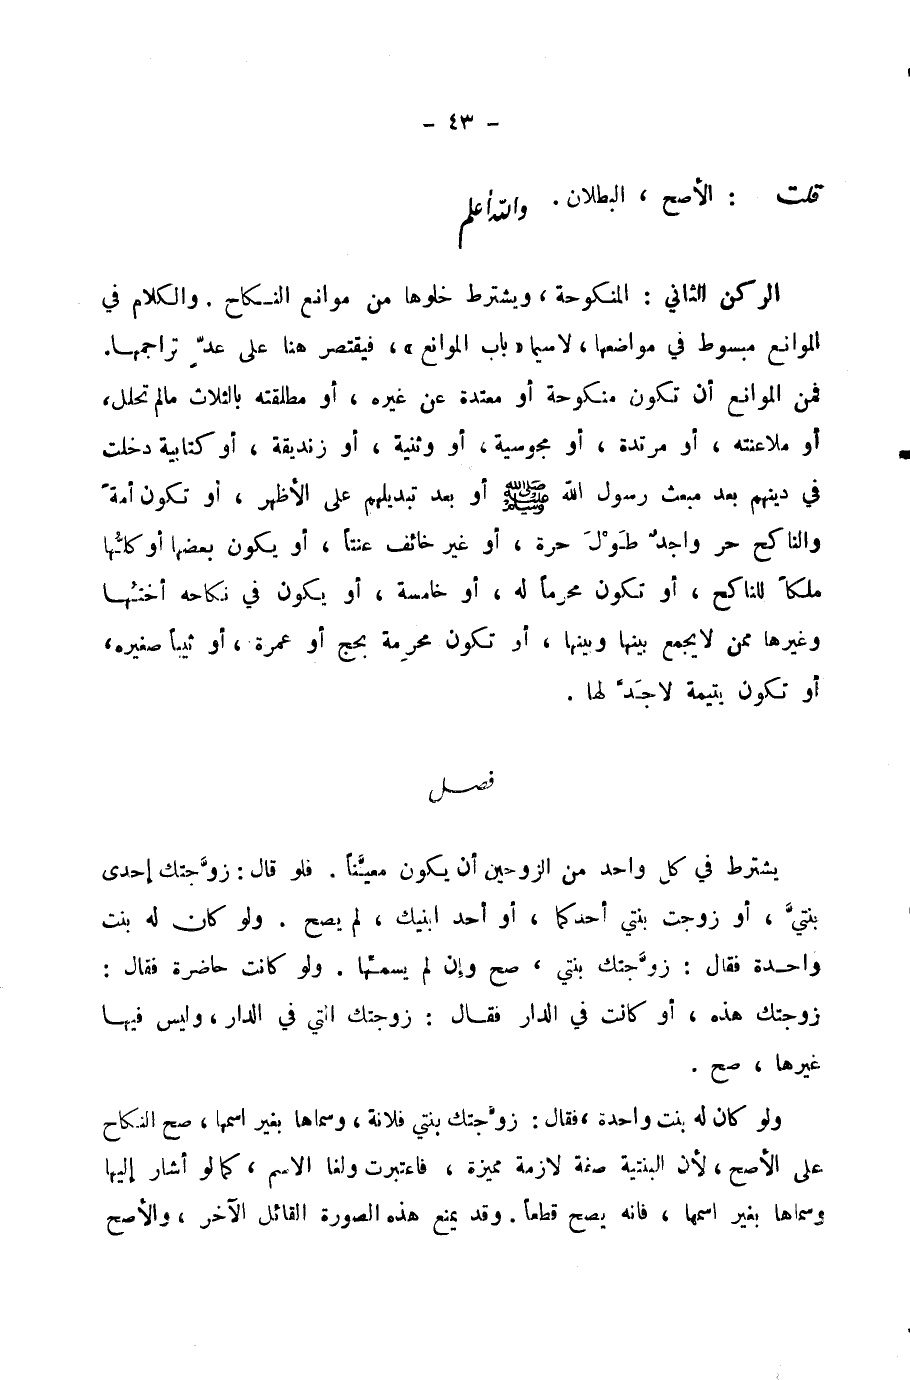 - ٤٣ -
قلت : الأصح ، البطلان . والله أعلم
الركن الثاني : المنكوحة ، ويشترط خلوها من موانع النـكاح . والكلام في
الموانع مبسوط في مواضعها ، لاسيما « باب الموانع » ، فيقتصر هنا على عدِّ تراجمهـا.
فمن الموانع أن تكون منكوحة أو معتدة عن غيره ، أو مطلقته بالثلاث مالم تحلل،
أو ملاعنته ، أو مرتدة ، أو مجوسية ، أو وثنية ، أو زنديقة ، أو كتابية دخلت
في دينهم بعد مبعث رسول الله ﷺ أو بعد تبديلهم على الأظهر ، أو تكون أمةً
والناكح حر واجدٌ طَوْلَ حرة ، أو غير خائف عنتاً ، أو يكون بعضها أو كلُّها
ملكاً للناكح ، أو تكون محرماً له ، أو خامسة ، أو يكون في نكاحه أختُهـا
وغيرها ممن لايجمع بينها وبينها ، أو تكون محرِمة بحج أو عمرة ، أو ثيباً صغيره،
أو تكون يتيمة لاجَدَّ لها .
فصـل
يشترط في كل واحد من الزوجين أن يكون معيَّناً . فلو قال : زوَّجتك إحدى
بنتيَّ ، أو زوجت بنتي أحدكما ، أو أحد ابنيك ، لم يصح . ولو كان له بنت
واحـدة فقال : زوَّجتك بنتي ، صح وإن لم يسمِّها . ولو كانت حاضرة فقال :
زوجتك هذه ، أو كانت في الدار فقـال : زوجتك التي في الدار ، وليس فيهـا
غيرها ، صح .
ولو كان له بنت واحدة ، فقال : زوَّجتك بنتي فلانة ، وسماها بغير اسمها ، صح النكاح
على الأصح ، لأن البنتية صفة لازمة مميزة ، فاعتبرت ولغا الاسم ، كما لو أشار إليها
وسماها بغير اسمها ، فانه يصح قطعاً . وقد يمنع هذه الصورة القائل الآخر ، والأصح